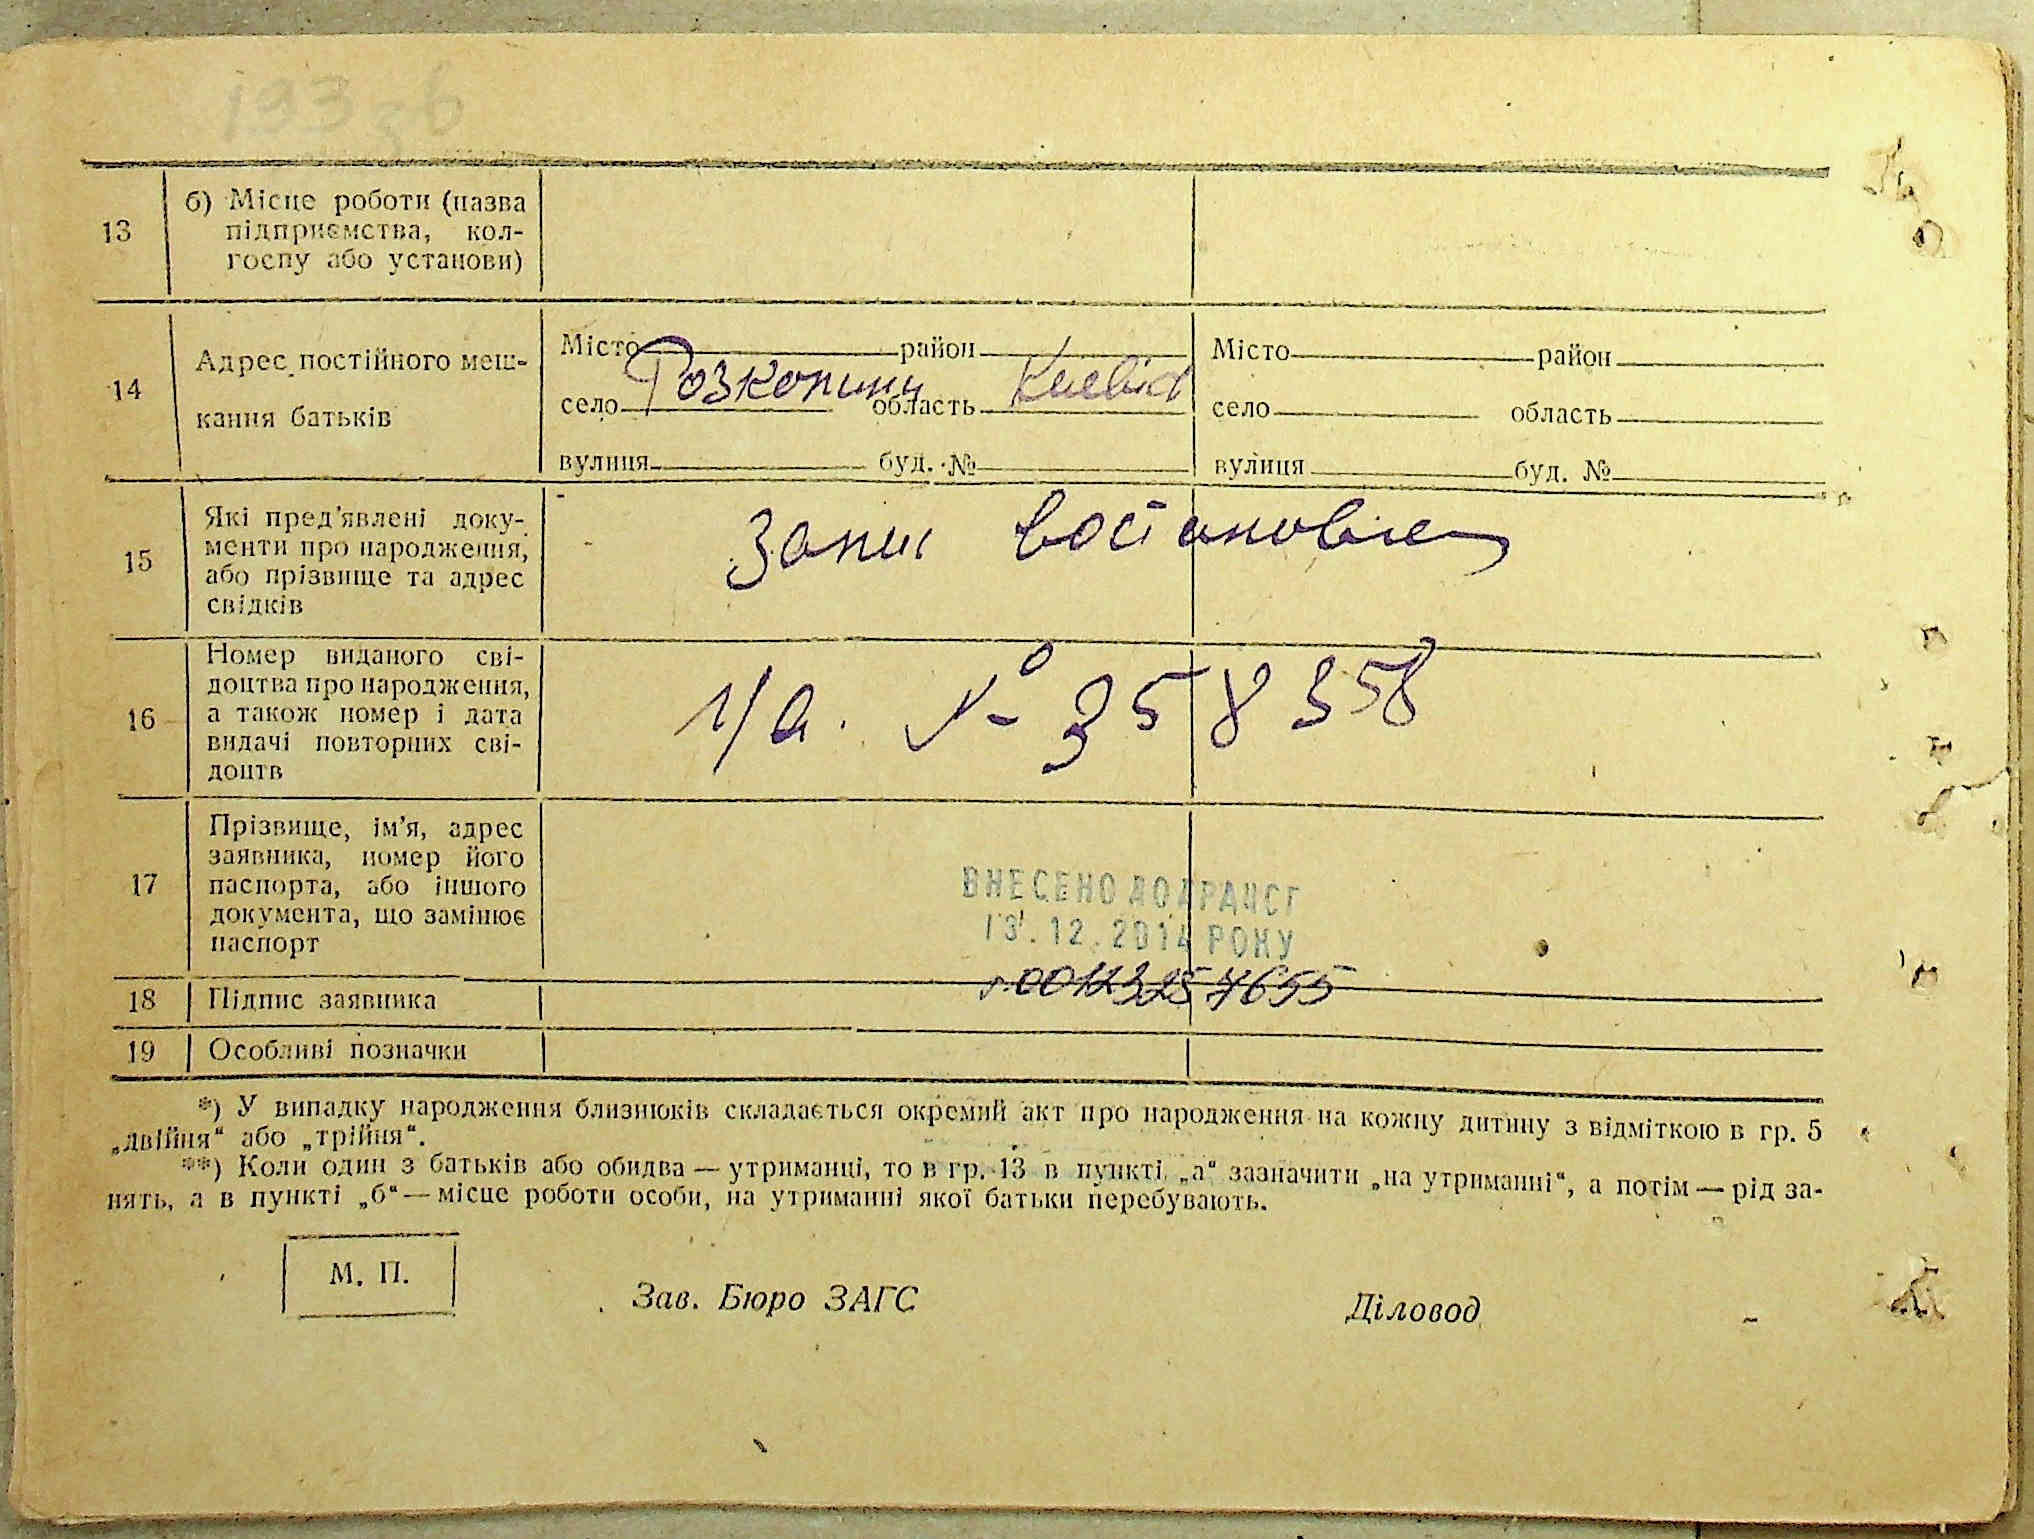 193зв
13
б) Місце роботи (назва
підприємства, кол-
госпу або установи)
14
Адрес постійного меш-
кання батьків
Місто район
село Розкопини область Києвск
вулиця буд. №
Місто район
село область
вулиця буд. №
15
Які пред'явлені доку-
менти про народження,
або прізвище та адрес
свідків
Запис востановлен
16
Номер виданого сві-
доцтва про народження,
а також номер і дата
видачі повторних сві-
доцтв
І/а. № 358358
17
Прізвище, ім'я, адрес
заявника, номер його
паспорта, або іншого
документа, що замінює
паспорт
ВНЕСЕНО ДО ДРАЦСГ
13.12.2014 РОКУ
18
Підпис заявника
00123257655
19
Особливі позначки
*) У випадку народження близнюків складається окремий акт про народження на кожну дитину з відміткою в гр. 5
„двійня“ або „трійня“.
**) Коли один з батьків або обидва — утриманці, то в гр. 13 в пункті „а“ зазначити „на утриманні“, а потім — рід за-
нять, а в пункті „б“ — місце роботи особи, на утриманні якої батьки перебувають.
М. П.
Зав. Бюро ЗАГС
Діловод